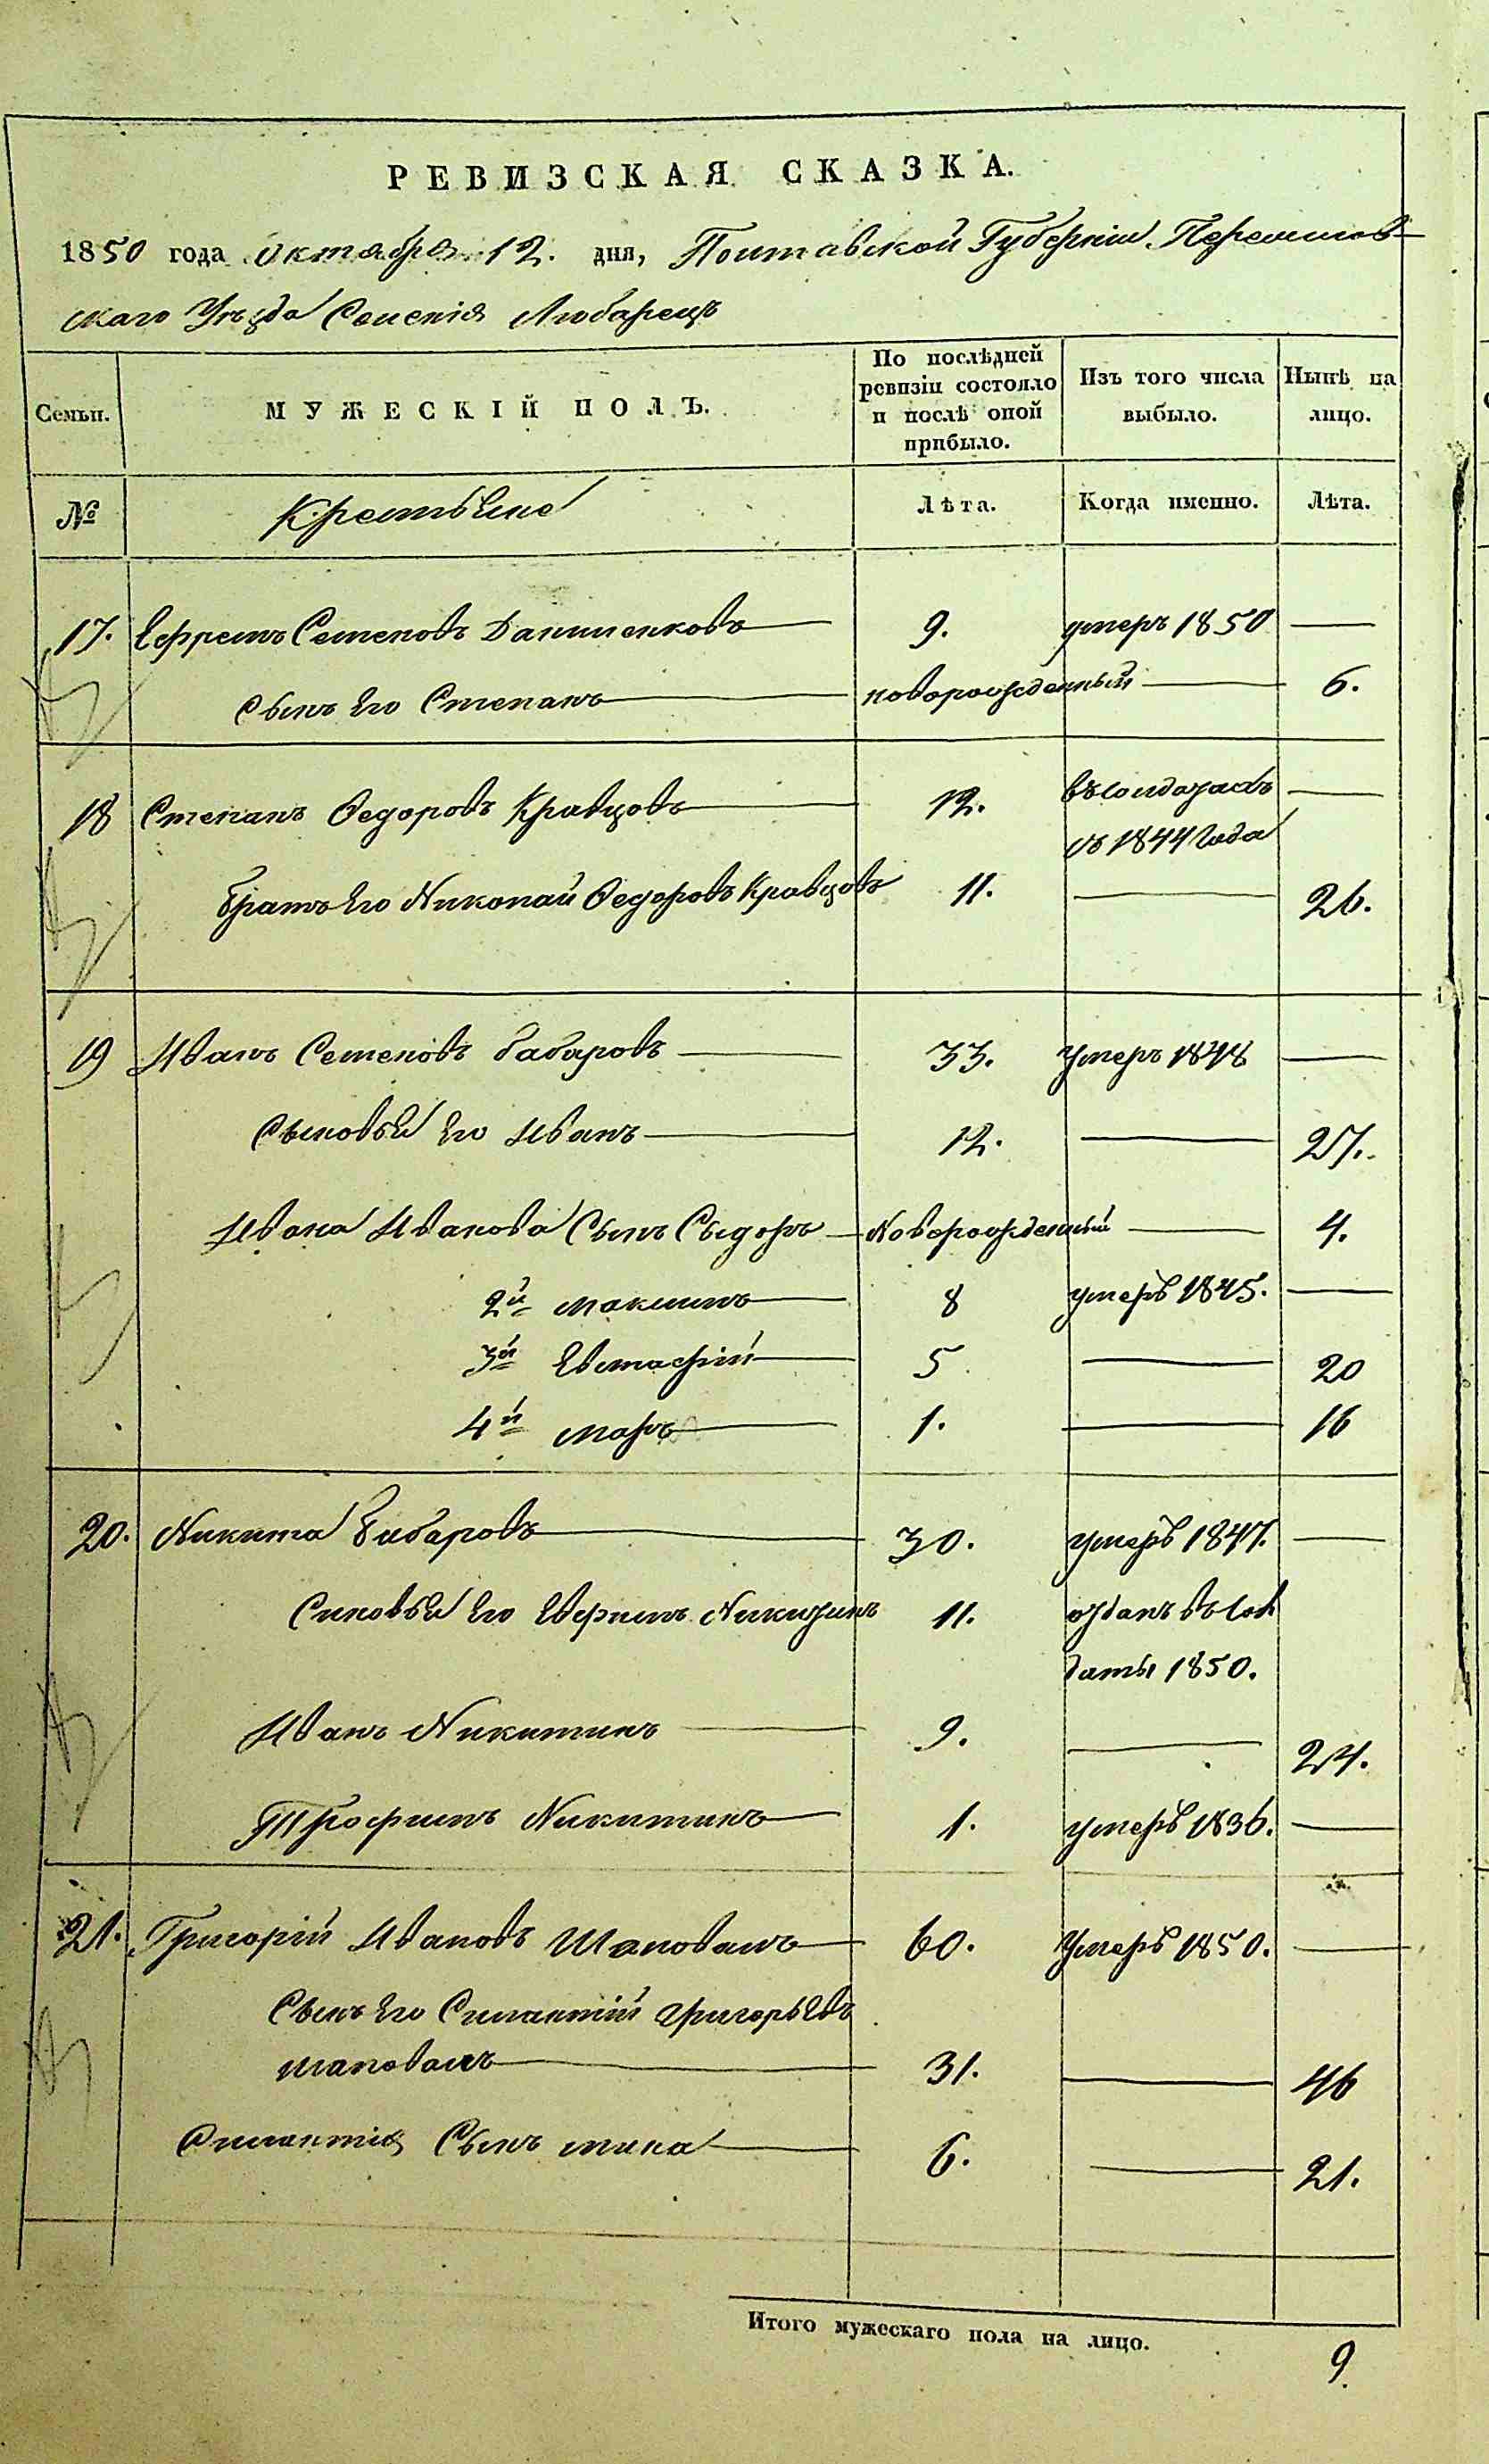 РЕВИЗСКАЯ СКАЗКА.
1850 года октября 12. дня, Полтавской Губерніи Переяслов-
скаго Уѣзда Селенія Любарецъ
Семьи. МУЖЕСКІЙ ПОЛЪ. По послѣдней ревизіи состояло и послѣ оной прибыло. Изъ того числа выбыло. Нынѣ на лицо.
№ Крестьяне Лѣта. Когда именно. Лѣта.
17. Ефремъ Семеновъ Даниленковъ 9. умеръ 1850
сынъ Его Степанъ новорожденный 6.
18 Степанъ Федоровъ Кравцовъ 12.
съ 1844 Года
братъ Его Николай Федоровъ Кравцовъ 11. 26.
19 Иванъ Семеновъ бабаровъ 33. умеръ 1848
Сыновья Его Иванъ 12. 27.
Ивана Иванова Сынъ Сыдоръ Новорожденный 4.
2й максимъ 8 умеръ 1845.
3й Евстафій 5 20
4й 1. 16
20. Никита Бабаровъ 30. умеръ 1847.
Синовья Его Никитинъ 11. отданъ въ Сол
даты 1850.
Иванъ Никитинъ 9. 24.
Трофимъ Никитинъ 1. умеръ 1836.
21. Григорій Ивановъ Шаповалъ 60. Умеръ 1850.
Сынъ Его Силантій Григорьевъ
шаповалъ 31. 46
Силантія Сынъ мина 6. 21.
Итого мужескаго пола на лицо. 9